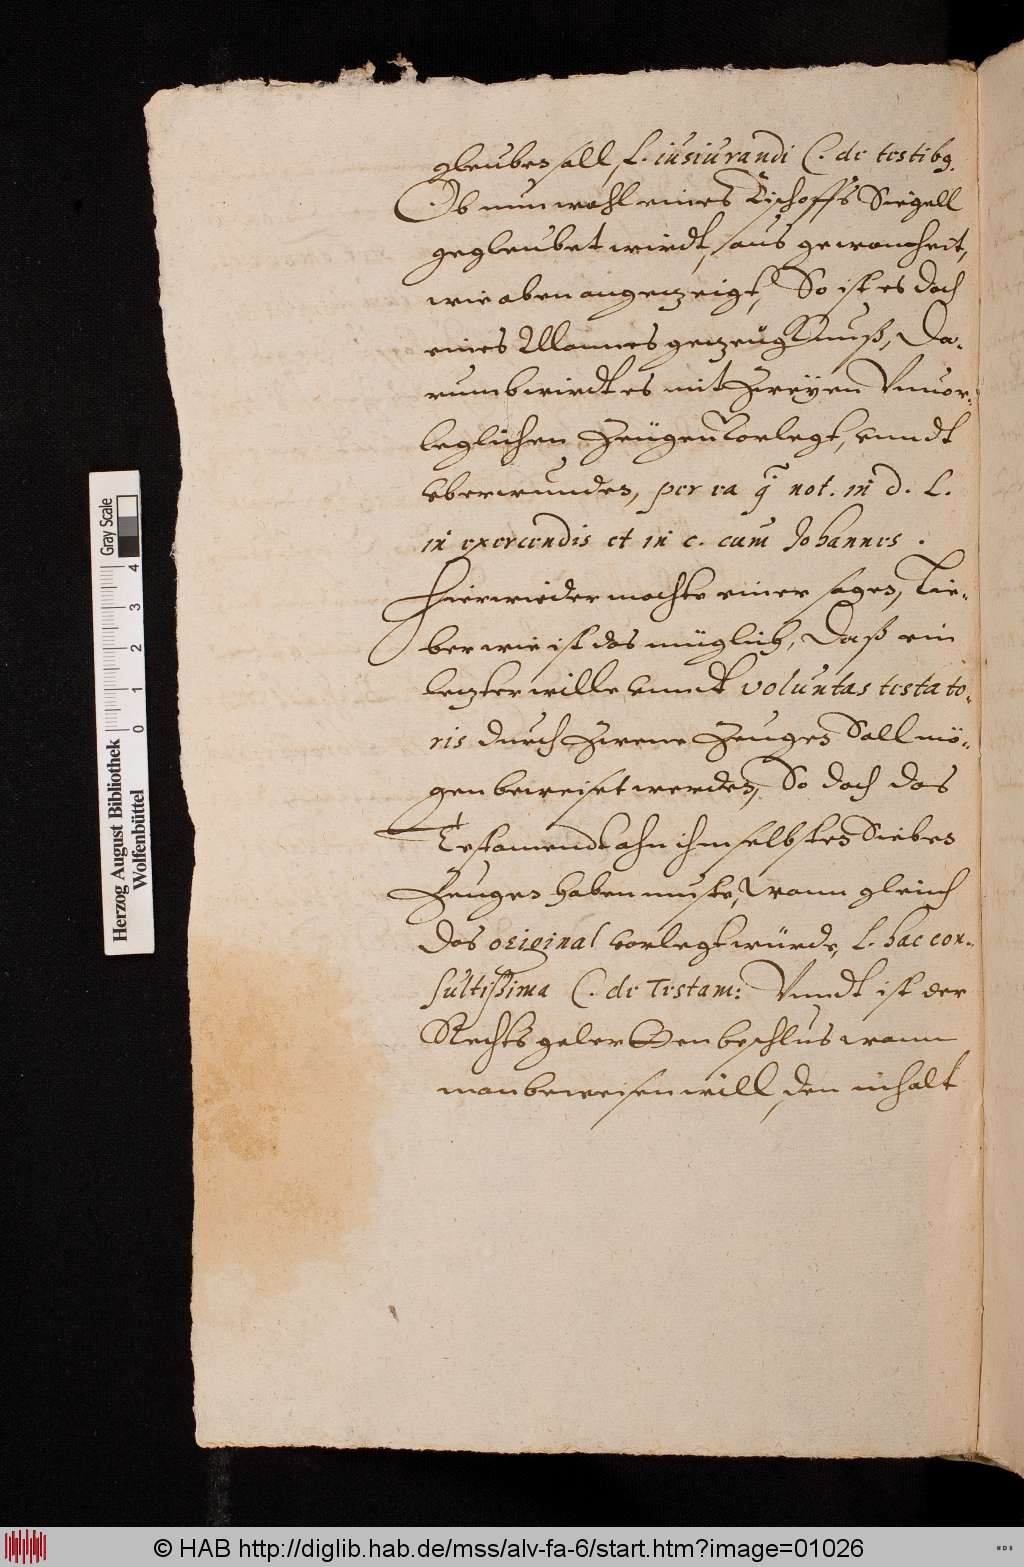 gleuben soll, L. iusiurandi C. de testibg.
Ob nun wohl eines Bischoffs Siegell
gegleubet wirdt, aus gewonheit,
wie oben angenzeigt, So ist es doch
eines Mannes gezeügknuß, Da-
rumb wirdt es mit Zweÿen Vnuor-
leglichen Zeügen vorlegt, vnndt
vberwunden, per ea q not. in d. L.
in exercendis et in c. cum Johannes.
Hierwieder mochte einer sagen, Lie-
ber wie ist das müglich, Daß ein
letzter wille vnndt voluntas testato-
ris durch zwene Zeugen Soll mö-
gen beweiset werden, So doch das
Testamendt ahn ihm selbsten Sieben
Zeugen haben muste, wann gleich
Das original vorlegt würde, L. hac con-
sultissima C. de Testam: Vnndt ist der
Rechtsgelertten beschlus wann
man beweisen will, den inhalt
Herzog August Bibliothek
Wolfenbüttel
0 1 2 3 4
Gray Scale
© HAB http://diglib.hab.de/mss/alv-fa-6/start.htm?image=01026
WDB